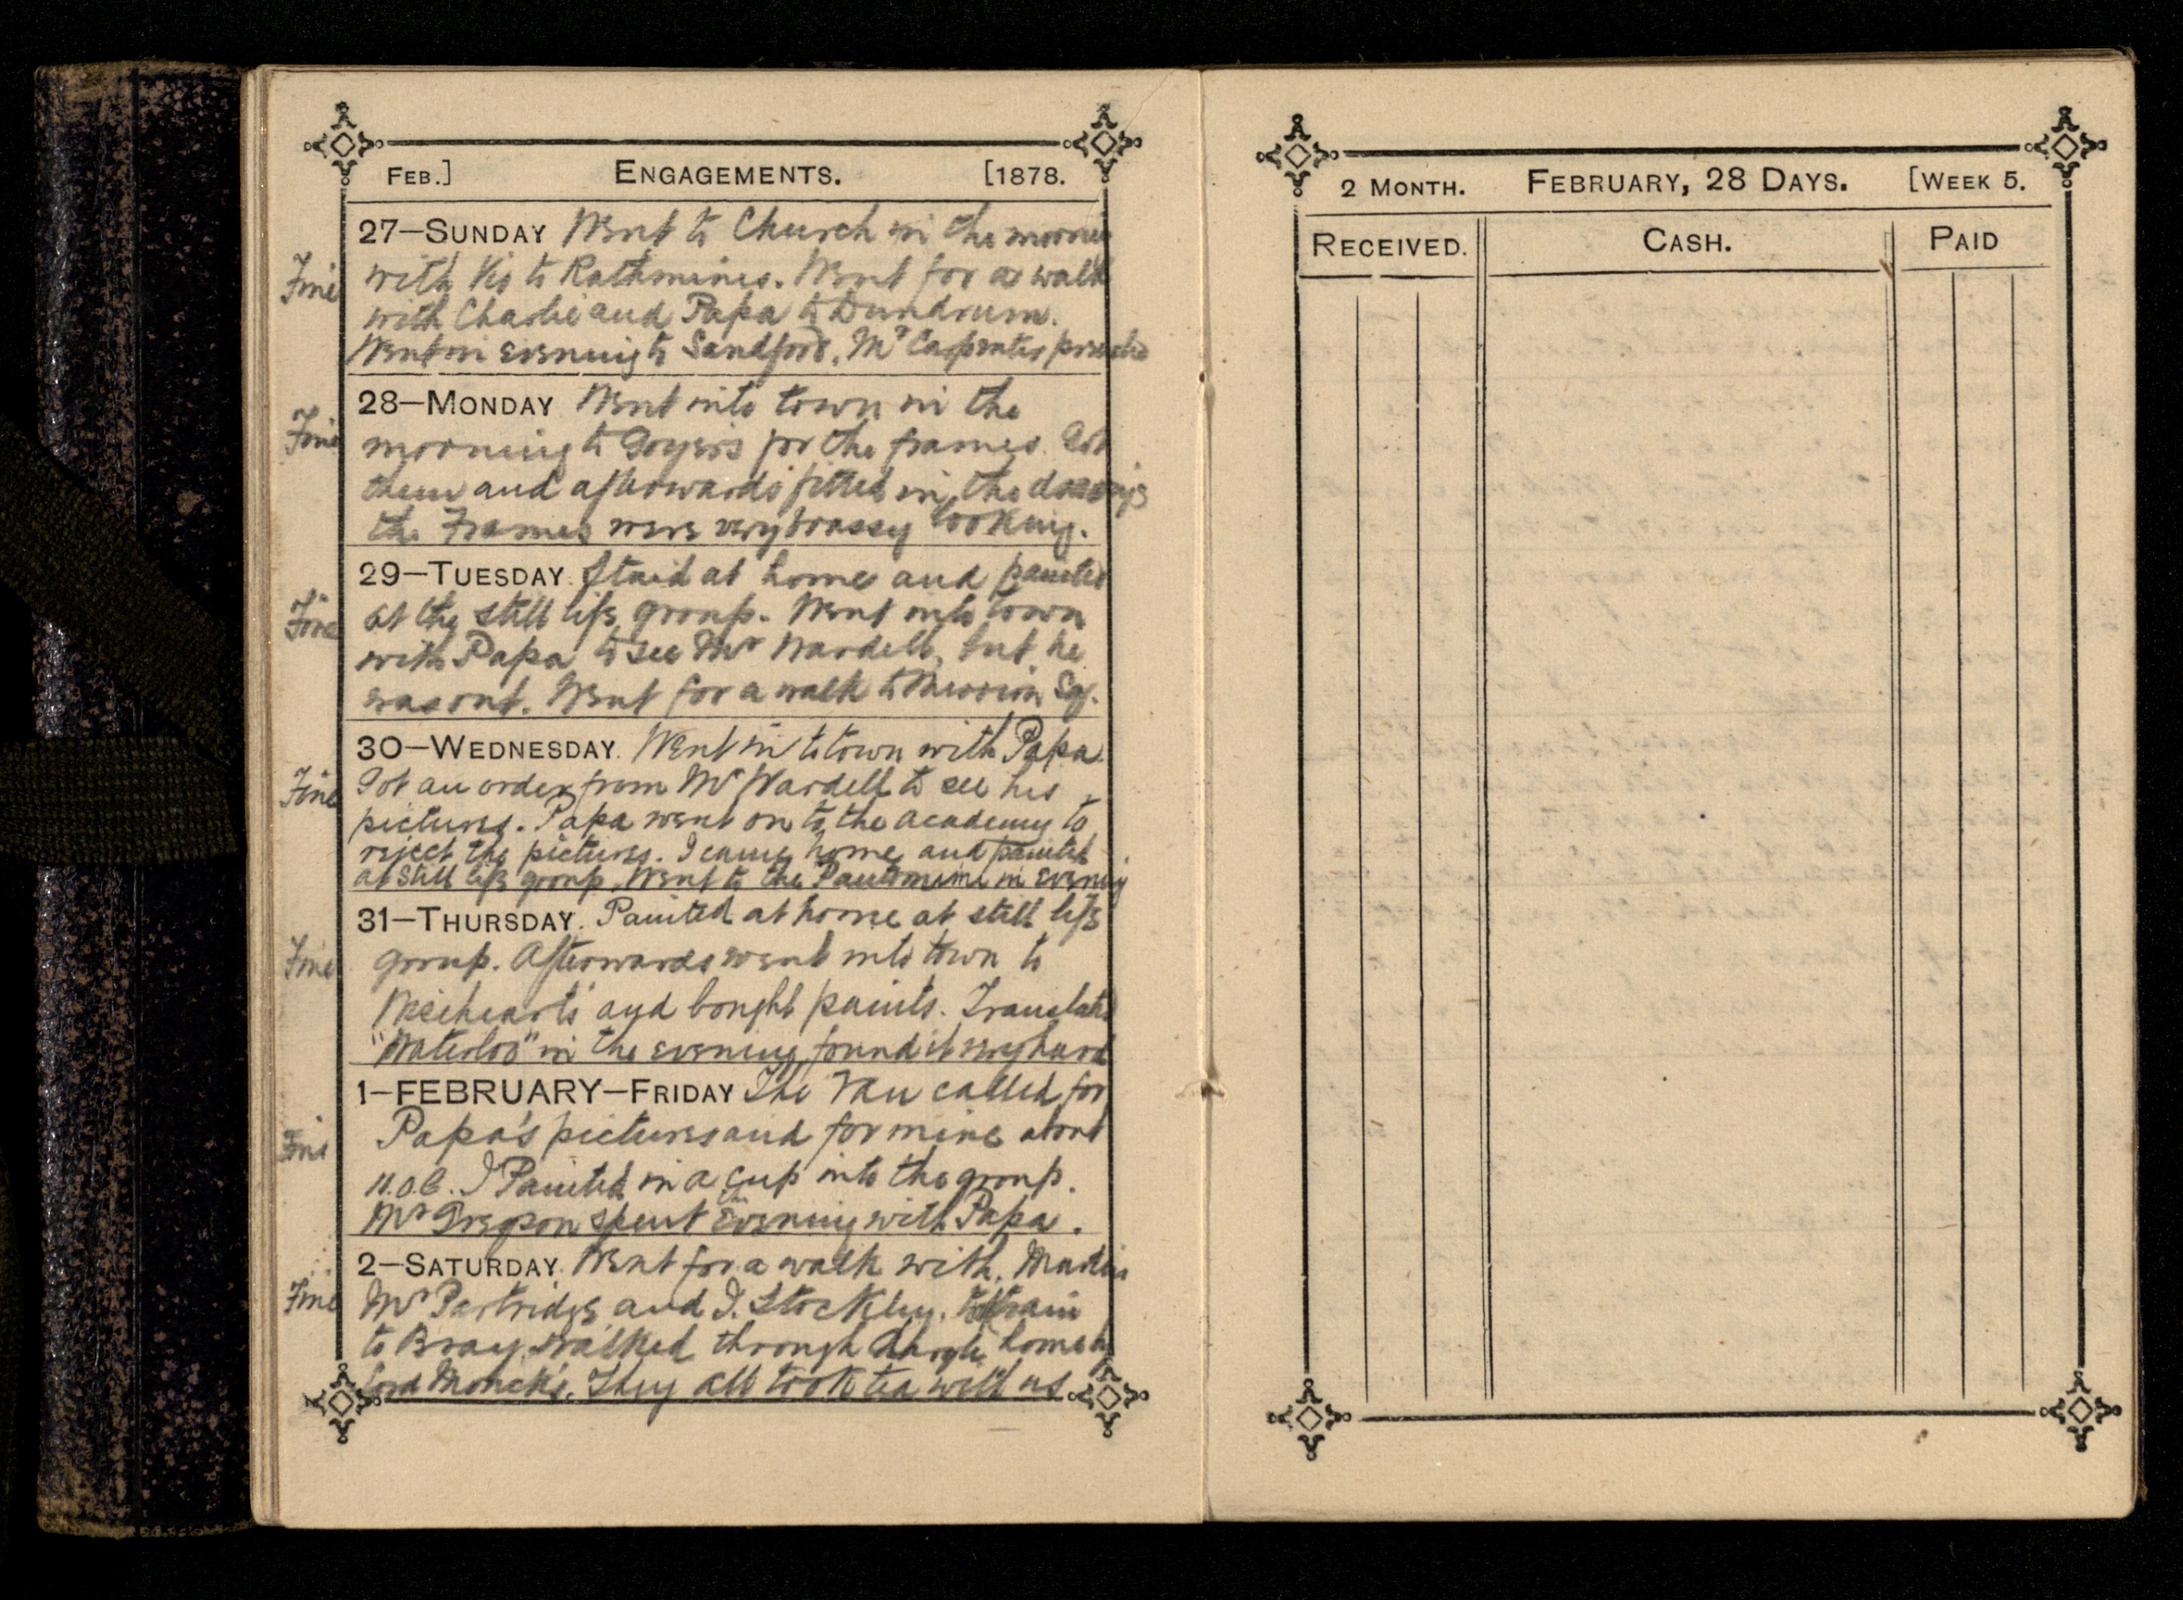 FEB.] ENGAGEMENTS. [1878.
27—SUNDAY Went to Church in the morning
Fine with Vio to Rathmines. Went for a walk
with Charlie and Papa to Dundrum.
Went in evening to Sandford. Mr Carpenter preached
28—MONDAY Went into town in the
Fine morning to for the frames. Got
them and afterwards fitted in the drawings
the Frames were very brassy looking.
29—TUESDAY. Staid at home and painted
Fine at the still life group. Went into town
with Papa to see Mr Wardell, but he
was out. Went for a walk to Merrion Sq.
30—WEDNESDAY. Went in to town with Papa.
Fine Got an order from Mr Wardell to see his
pictures. Papa went on to the Academy to
reject the pictures. I came home and painted
at Still life group. Went to the Pantomime in evening
31—THURSDAY. Painted at home at still life
Fine group. Afterwards went into town to
and bought paints. Translated
"Waterloo" in the evening found it very hard
1—FEBRUARY—FRIDAY The Van called for
Papa's pictures and for mine about
Fine 11.o.C. I Painted in a cup into the group.
Mr Gregson spent the Evening with Papa.
2—SATURDAY. Went for a walk with
Fine Mr Partridge and J. Stockley. train
to Bray, walked through Dargle home by
Lord Monck's. They all took tea with us
2 MONTH. FEBRUARY, 28 DAYS. [WEEK 5.
RECEIVED. CASH. PAID